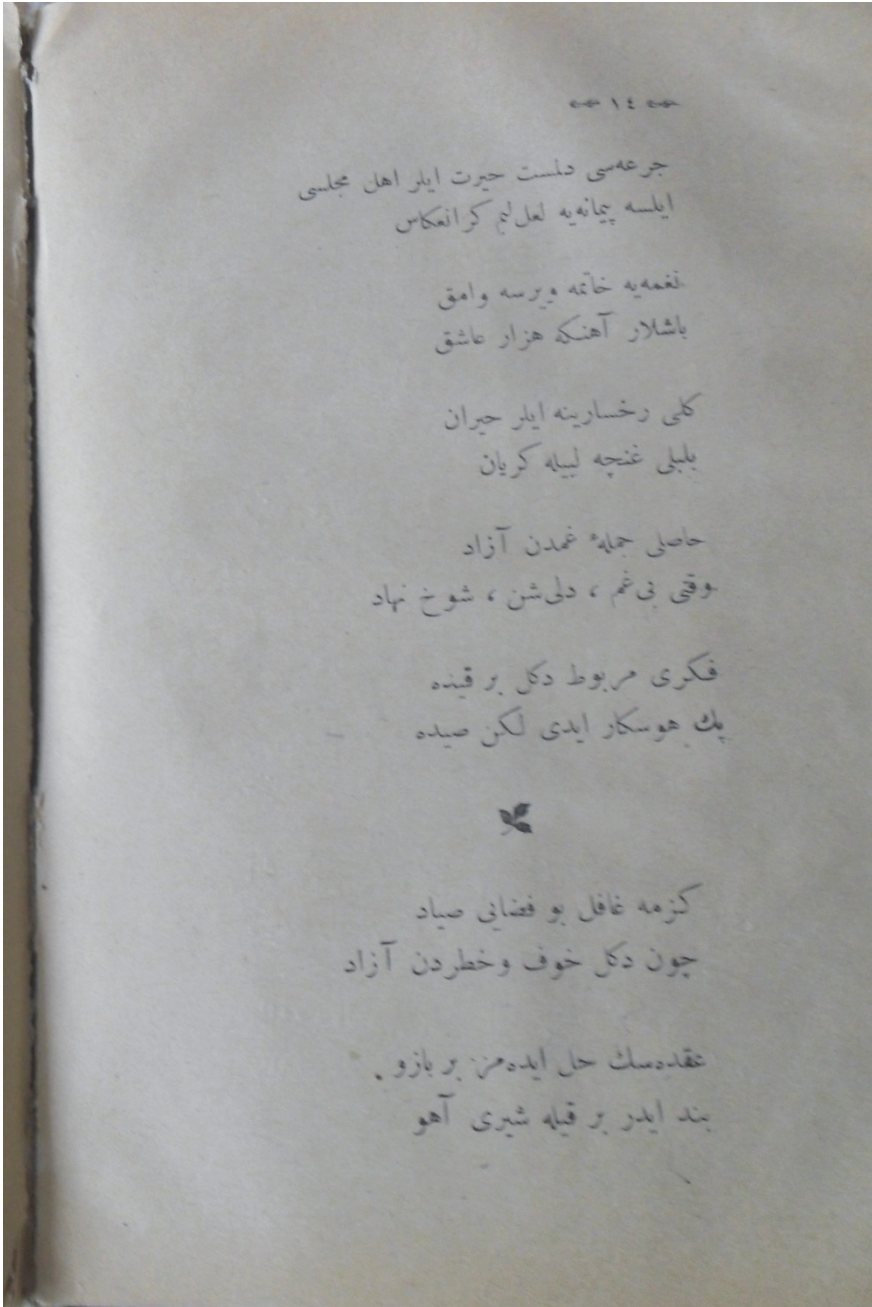 ١٤
جرعه‌سی دلمست حیرت ایلر اهل مجلسی
ایلسه پیمانه‌یه لعل لبم کر انعکاس
نغمه‌یه خاتمه ویرسه وامق
باشلار آهنکه هزار عاشق
کلی رخسارینه ایلر حیران
بلبلی غنچه لبیله کریان
حاصلی جملهٔ غمدن آزاد
وقتی بی‌غم ، دلی‌شن ، شوخ نهاد
فکری مربوط دکل بر قیده
پك هوسکار ایدی لکن صیده
کزمه غافل بو فضایی صیاد
چون دکل خوف وخطردن آزاد
عقده‌سك حل ایده‌مز بر بازو
بند ایدر بر قیله شیری آهو